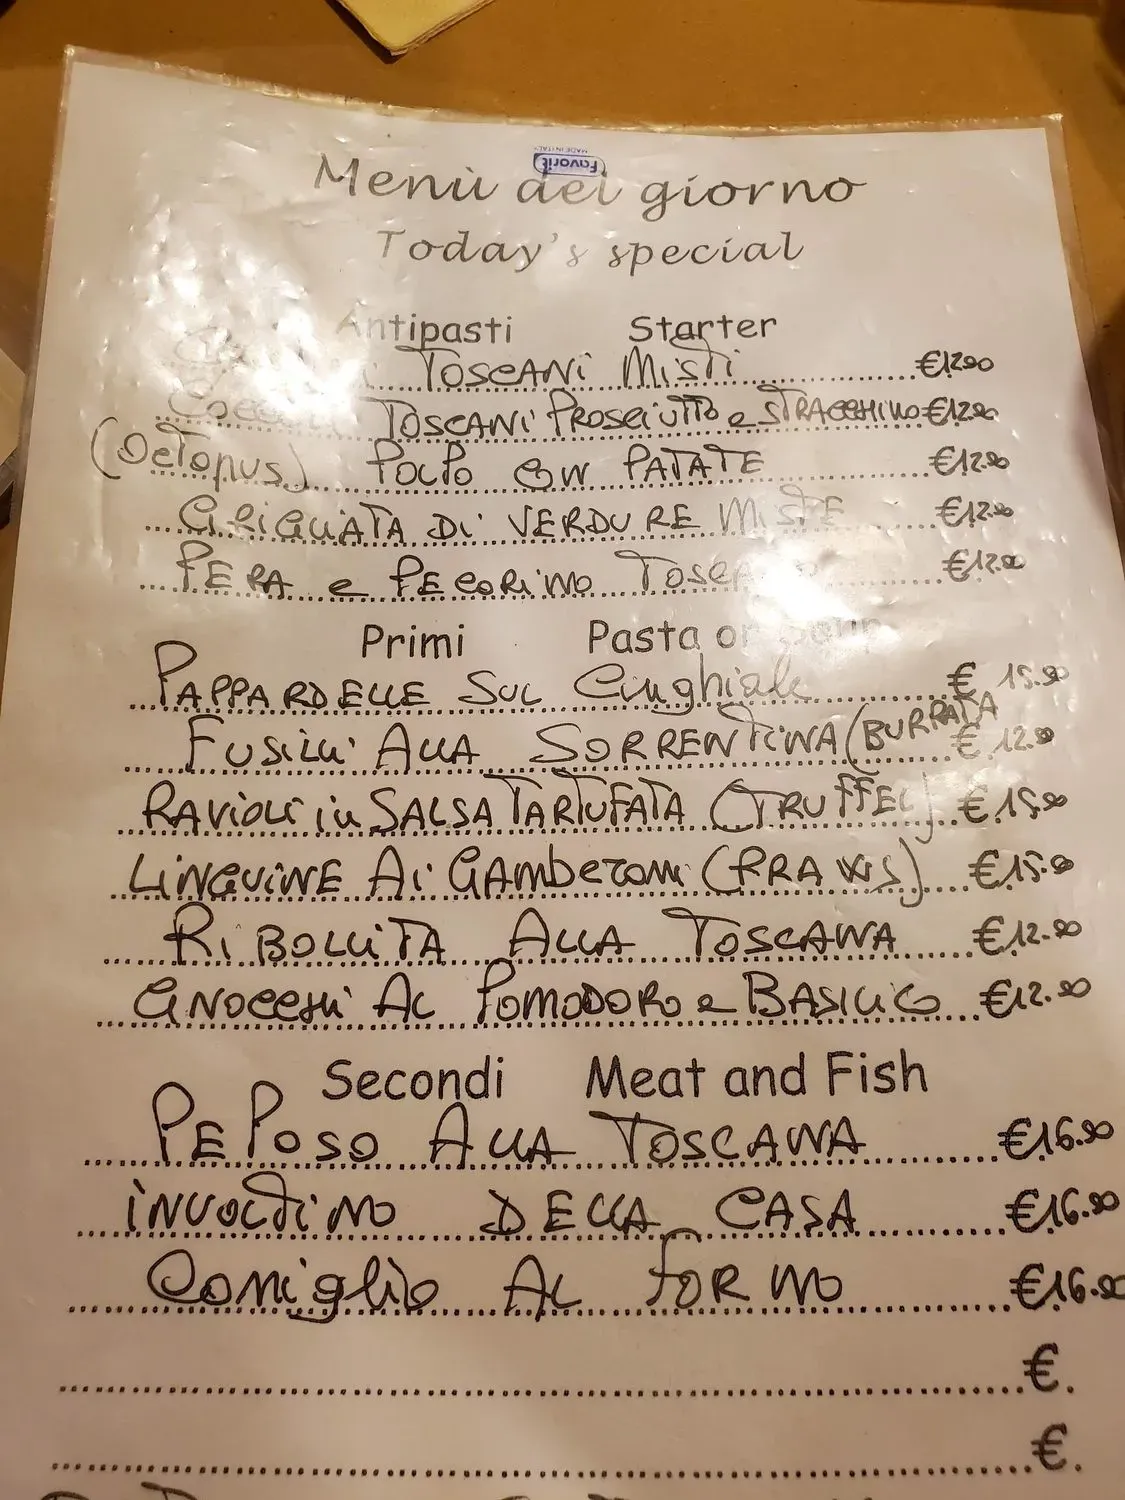 Favorit
MADE IN ITALY
Menù del giorno
Today's special
Antipasti Starter
TOSCANI MISTI €12.00
TOSCANI PROSCIUTTO e STRACCHINO €12.00
(OCTOPUS) POLPO CON PATATE €12.00
GRIGLIATA DI VERDURE MISTE €12.00
PERA e PECORINO €12.00
Primi Pasta or Soup
PAPPARDELLE SUL Cinghiale € 15.00
FUSILLI ALLA SORRENTINA (BURRATA € 12.00
RAVIOLI in SALSA TARTUFATA (TRUFFEL) € 15.00
LINGUINE AI GAMberoni (PRAWNS) € 15.00
RIBOLLITA ALLA TOSCANA €12.00
GNOCCHI AL POMODORO e BASILICO €12.00
Secondi Meat and Fish
PEPOSO ALLA TOSCANA €16.00
INVOLTINO DELLA CASA €16.00
Coniglio AL FORNO €16.00
€.
€.